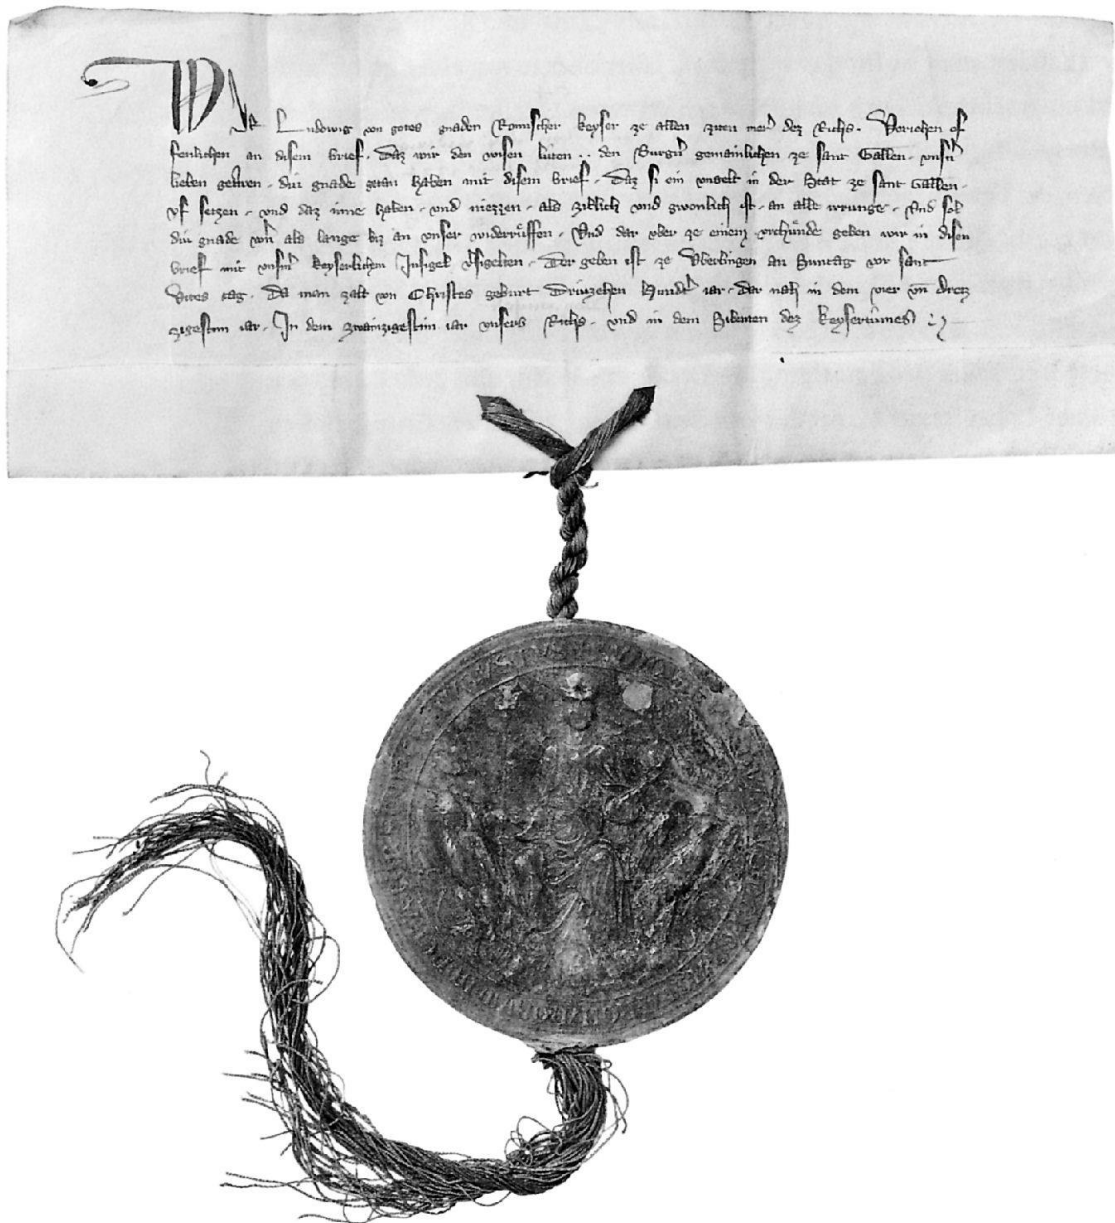 Wir Ludowig von gotes gnaden Romischer keyser ze allen ziten merer dez Richs. Veriehen of
fenlichen an disem brief. Daz wir den wisen luten .. den Burgern gemainlichen ze sant Gallen. vnsern
lieben getrwen. die gnade getan haben mit disem brief. Daz si ein vngelt in der Stat ze sant Gallen.
vf setzen. vnd daz inne haben. vnd niezzen. als zitlich vnd gwonlich ist. an alle irrunge. Vnd sol
diu gnade wern als lange biz an vnser widerruffen. Vnd dar vber ze einem vrchunde geben wir in disen
brief mit vnserm keyserlichem Insigel versigelten. Der geben ist ze Vberlingen an Suntag vor sant
Vites tag. Da man zalt von Christes geburt Driuzehen hundert iar. dar nah in dem vier vnd Dreiz
zigestem iar. In dem zwainzigestem iar vnsers Richs. vnd in dem Sibenten dez keysertumes